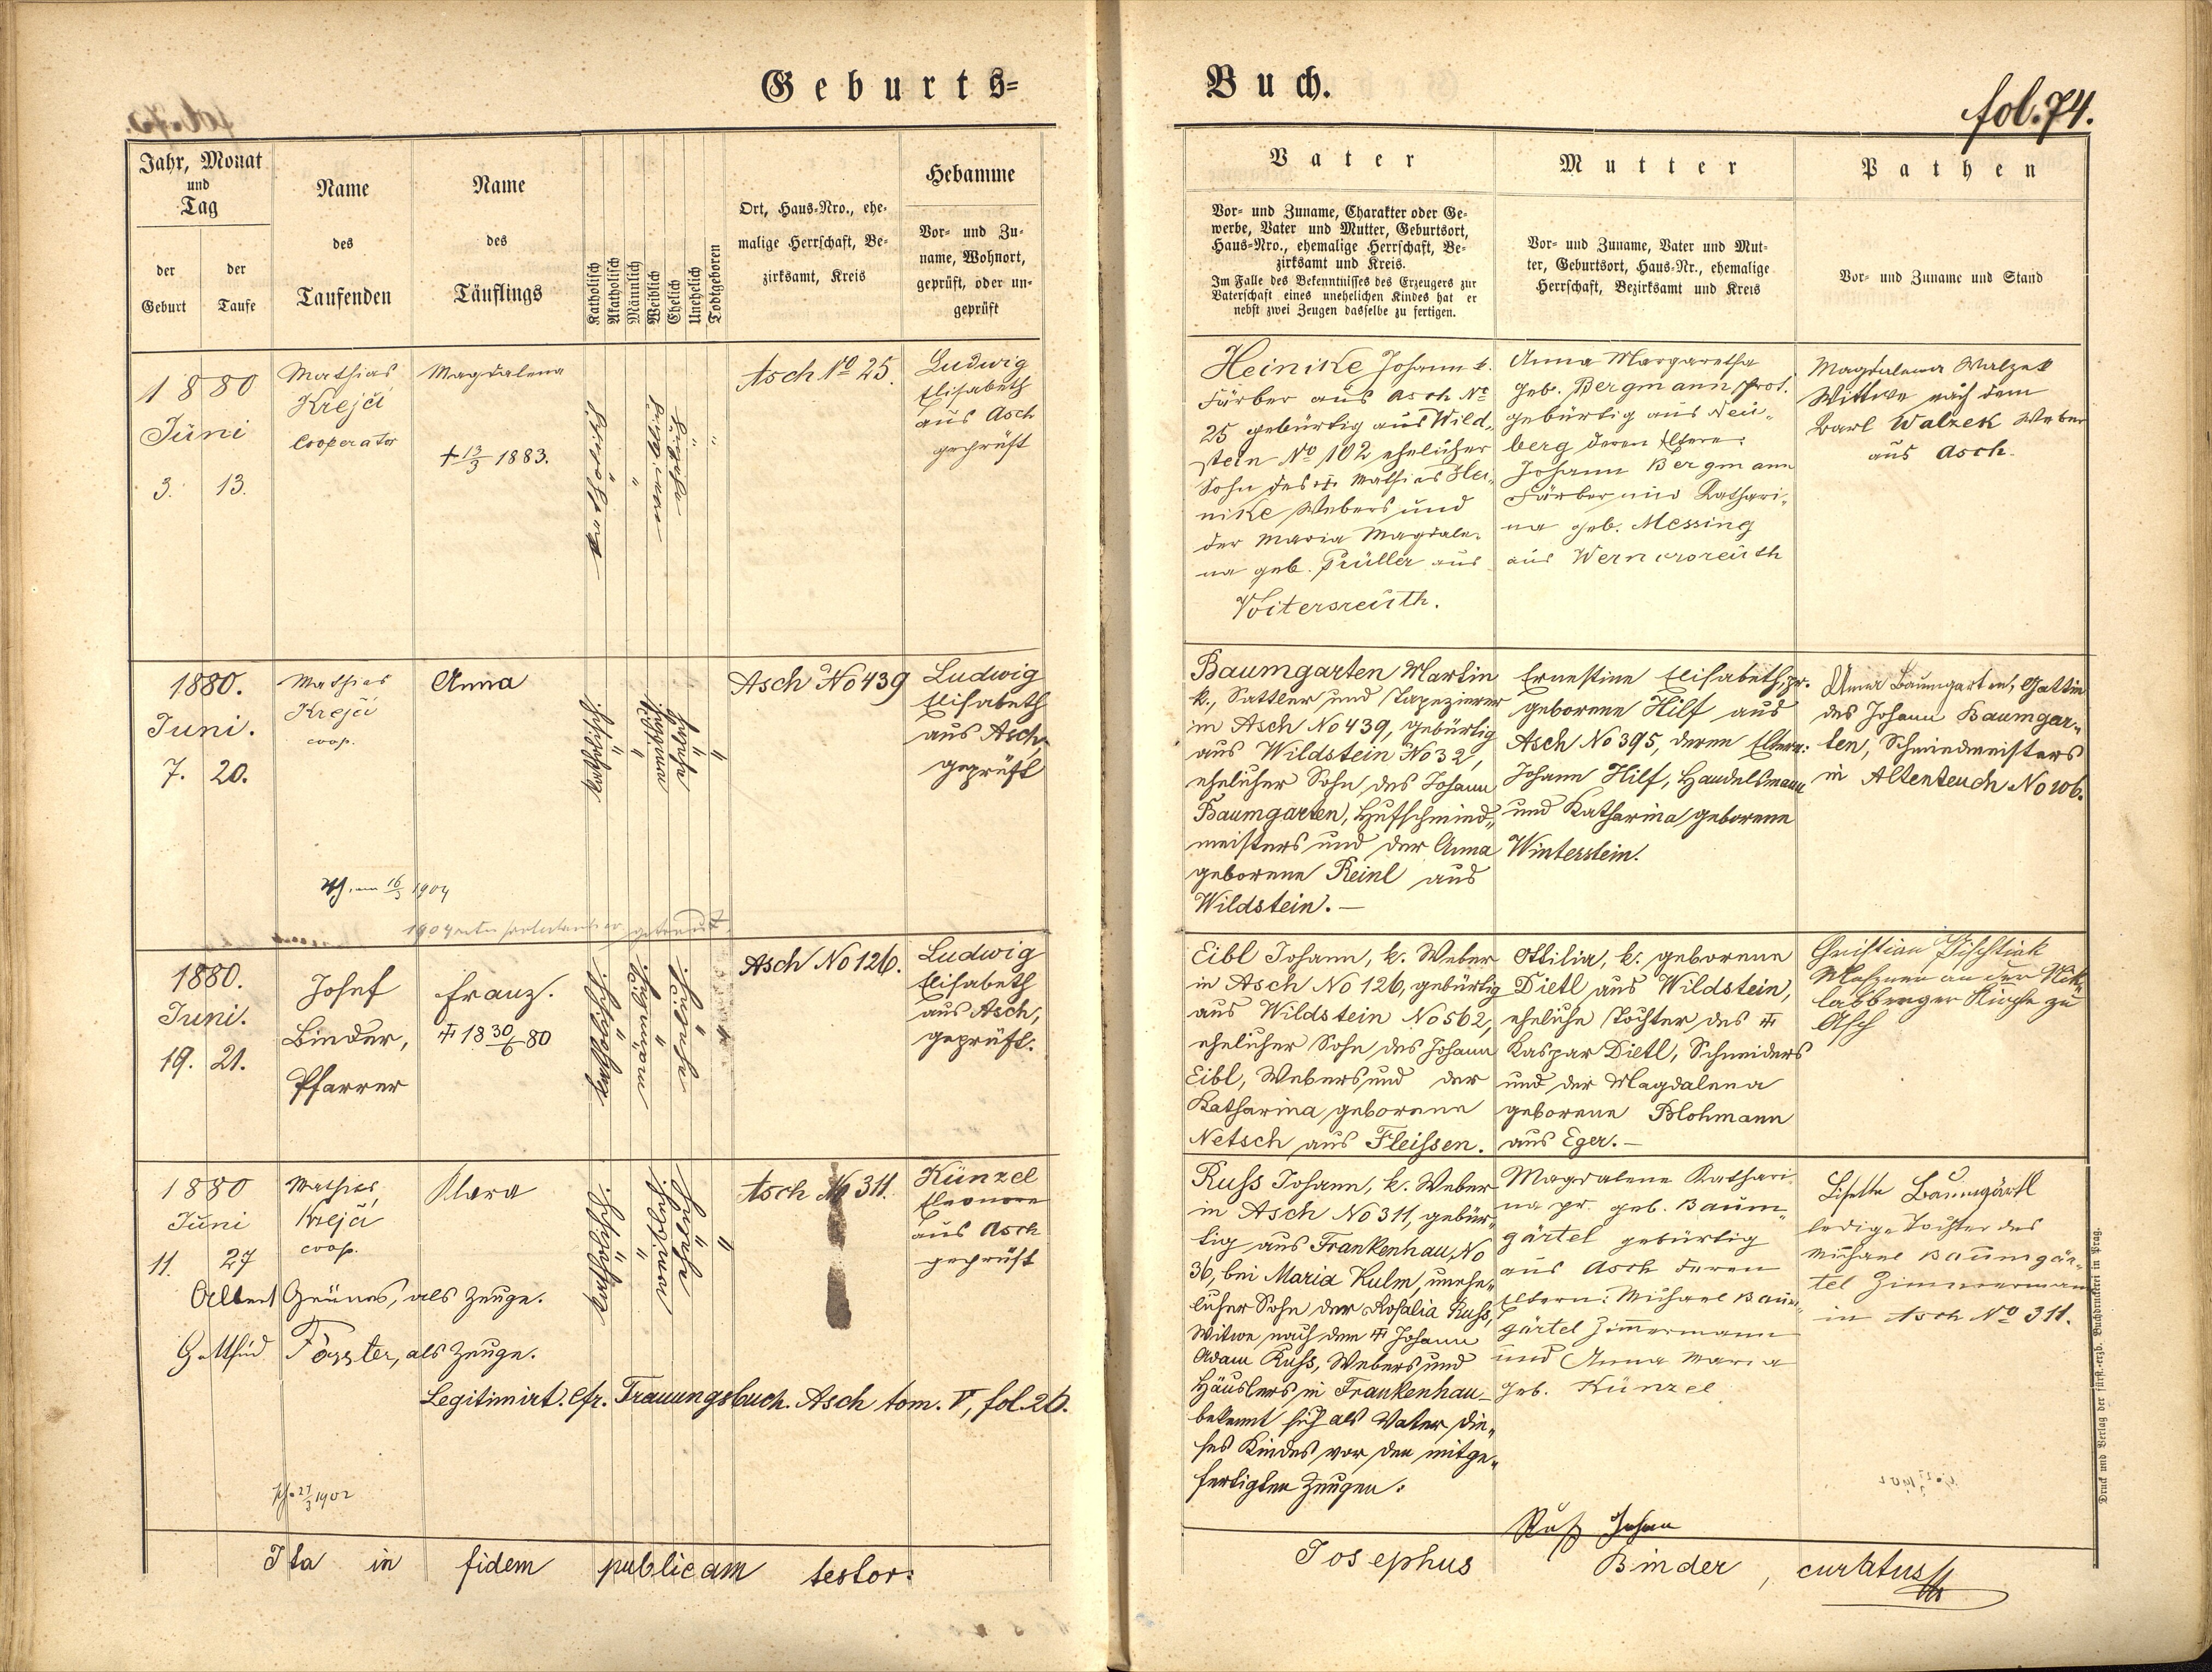 Geburts-
Buch.
fol. 74.
Jahr, Monat
und
Tag
der
Geburt
der
Taufe
Name
des
Taufenden
Name
des
Täuflings
Katholisch
Akatholisch
Männlich
Weiblich
Ehelich
Unehelich
Todtgeboren
Ort, Haus-Nro., ehe-
malige Herrschaft, Be-
zirksamt, Kreis
Hebamme
Vor- und Zu-
name, Wohnort,
geprüft, oder un-
geprüft
Vater
Vor- und Zuname, Charakter oder Ge-
werbe, Vater und Mutter, Geburtsort,
Haus-Nro., ehemalige Herrschaft, Be-
zirksamt und Kreis.
Im Falle des Bekenntnisses des Erzeugers zur
Vaterschaft eines unehelichen Kindes hat er
nebst zwei Zeugen dasselbe zu fertigen.
Mutter
Vor- und Zuname, Vater und Mut-
ter, Geburtsort, Haus-Nr., ehemalige
Herrschaft, Bezirksamt und Kreis
Pathen
Vor- und Zuname und Stand
1880
Juni
3. 13.
Mathias
Krejči
Cooperator
Magdalena
+ 13/3 1883.
Asch No 25.
Ludwig
Elisabeth
aus Asch
geprüft
Heinike Johann k.
Färber aus Asch No
25 gebürtig aus Wild-
stein No 102 ehelicher
Sohn des + Mathias Hei-
nike Webers und
der Maria Magdale-
na geb. Prüller aus
Voitersreuth.
Anna Margaretha
geb. Bergmann prot.
gebürtig aus Neu-
berg deren Eltern:
Johann Bergmann
Färber und Kathari-
na geb. Messing
aus Wernersreuth
Magdalena Walzek
Wittwe nach dem
Karl Walzek Weber
aus Asch.
1880.
Juni.
7. 20.
Mathias
Krejči
coop.
Anna
am 16/3 1904
Asch No 439
Ludwig
Elisabeth
aus Asch,
geprüft
Baumgarten Martin
k., Sattler und Tapezierer
in Asch No 439, gebürtig
aus Wildstein No 32,
ehelicher Sohn des Johann
Baumgarten, Hufschmied-
meisters und der Anna
geborene Reinl aus
Wildstein. —
Ernestine Elisabeth, pr.
geborene Hilf aus
Asch No 395, deren Eltern:
Johann Hilf, Handelsmann
und Katharina geborene
Winterstein.
Anna Baumgarten, Gattin
des Johann Baumgar-
ten, Schmiedmeisters
in Altenteich No 106.
1880.
Juni.
19. 21.
Josef
Binder,
Pfarrer
Franz.
+ 18 30/6 80
Asch No 126.
Ludwig
Elisabeth
aus Asch,
geprüft.
Eibl Johann, k. Weber
in Asch No 126, gebürtig
aus Wildstein No 562,
ehelicher Sohn des Johann
Eibl, Webers und der
Katharina geborene
Netsch aus Fleissen.
Ottilia, k. geborene
Dietl aus Wildstein,
eheliche Tochter des +
Kaspar Dietl, Schneiders
und der Magdalena
geborene Blohmann
aus Eger. —
Christian
Meßner an der Nik-
lasberger Kirche zu
Asch
1880
Juni
11. 27
Mathias
Krejči
coop.
Klara
Asch No 311.
Künzel
Eleonore
aus Asch
geprüft
Albert Grünes, als Zeuge.
Gottfried Förster, als Zeuge.
Legitimirt. Cfr. Trauungsbuch. Asch tom. V, fol. 26.
27/3 1902
Russ Johann, k. Weber
in Asch No 311, gebür-
tig aus Frankenhau, No
36, bei Maria Kulm, unehe-
licher Sohn der Rosalia Russ,
Witwe nach dem + Johann
Adam Russ, Webers und
Häuslers in Frankenhau
bekennt sich als Vater die-
ses Kindes vor den mitge-
fertigten Zeugen.
Ruß Johann
Magdalena Kathari-
na pr. geb. Baum-
gärtel gebürtig
aus Asch deren
Eltern: Michael Baum-
gärtel Zimmermann
und Anna Maria
geb. Künzel
Lisette Baumgärtl
ledige Tochter des
Michael Baumgär-
tel Zimmermann
in Asch No 311.
Ita in fidem publicam testor:
Josephus Binder, curatus
Druck und Verlag der fürst.-erzb. Buchdruckerei in Prag.